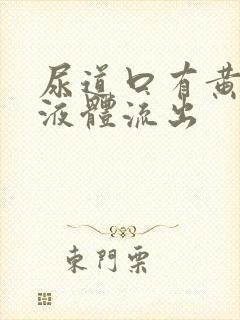 尿道口有黄
液體流出
東門栗